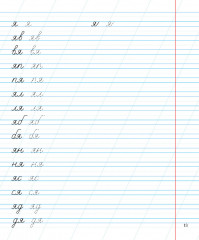 я я я я
яв яв
вя вя
яп яп
пя пя
ял ял
ля ля
яб яб
бя бя
ян ян
ня ня
яс яс
ся ся
яд яд
дя дя